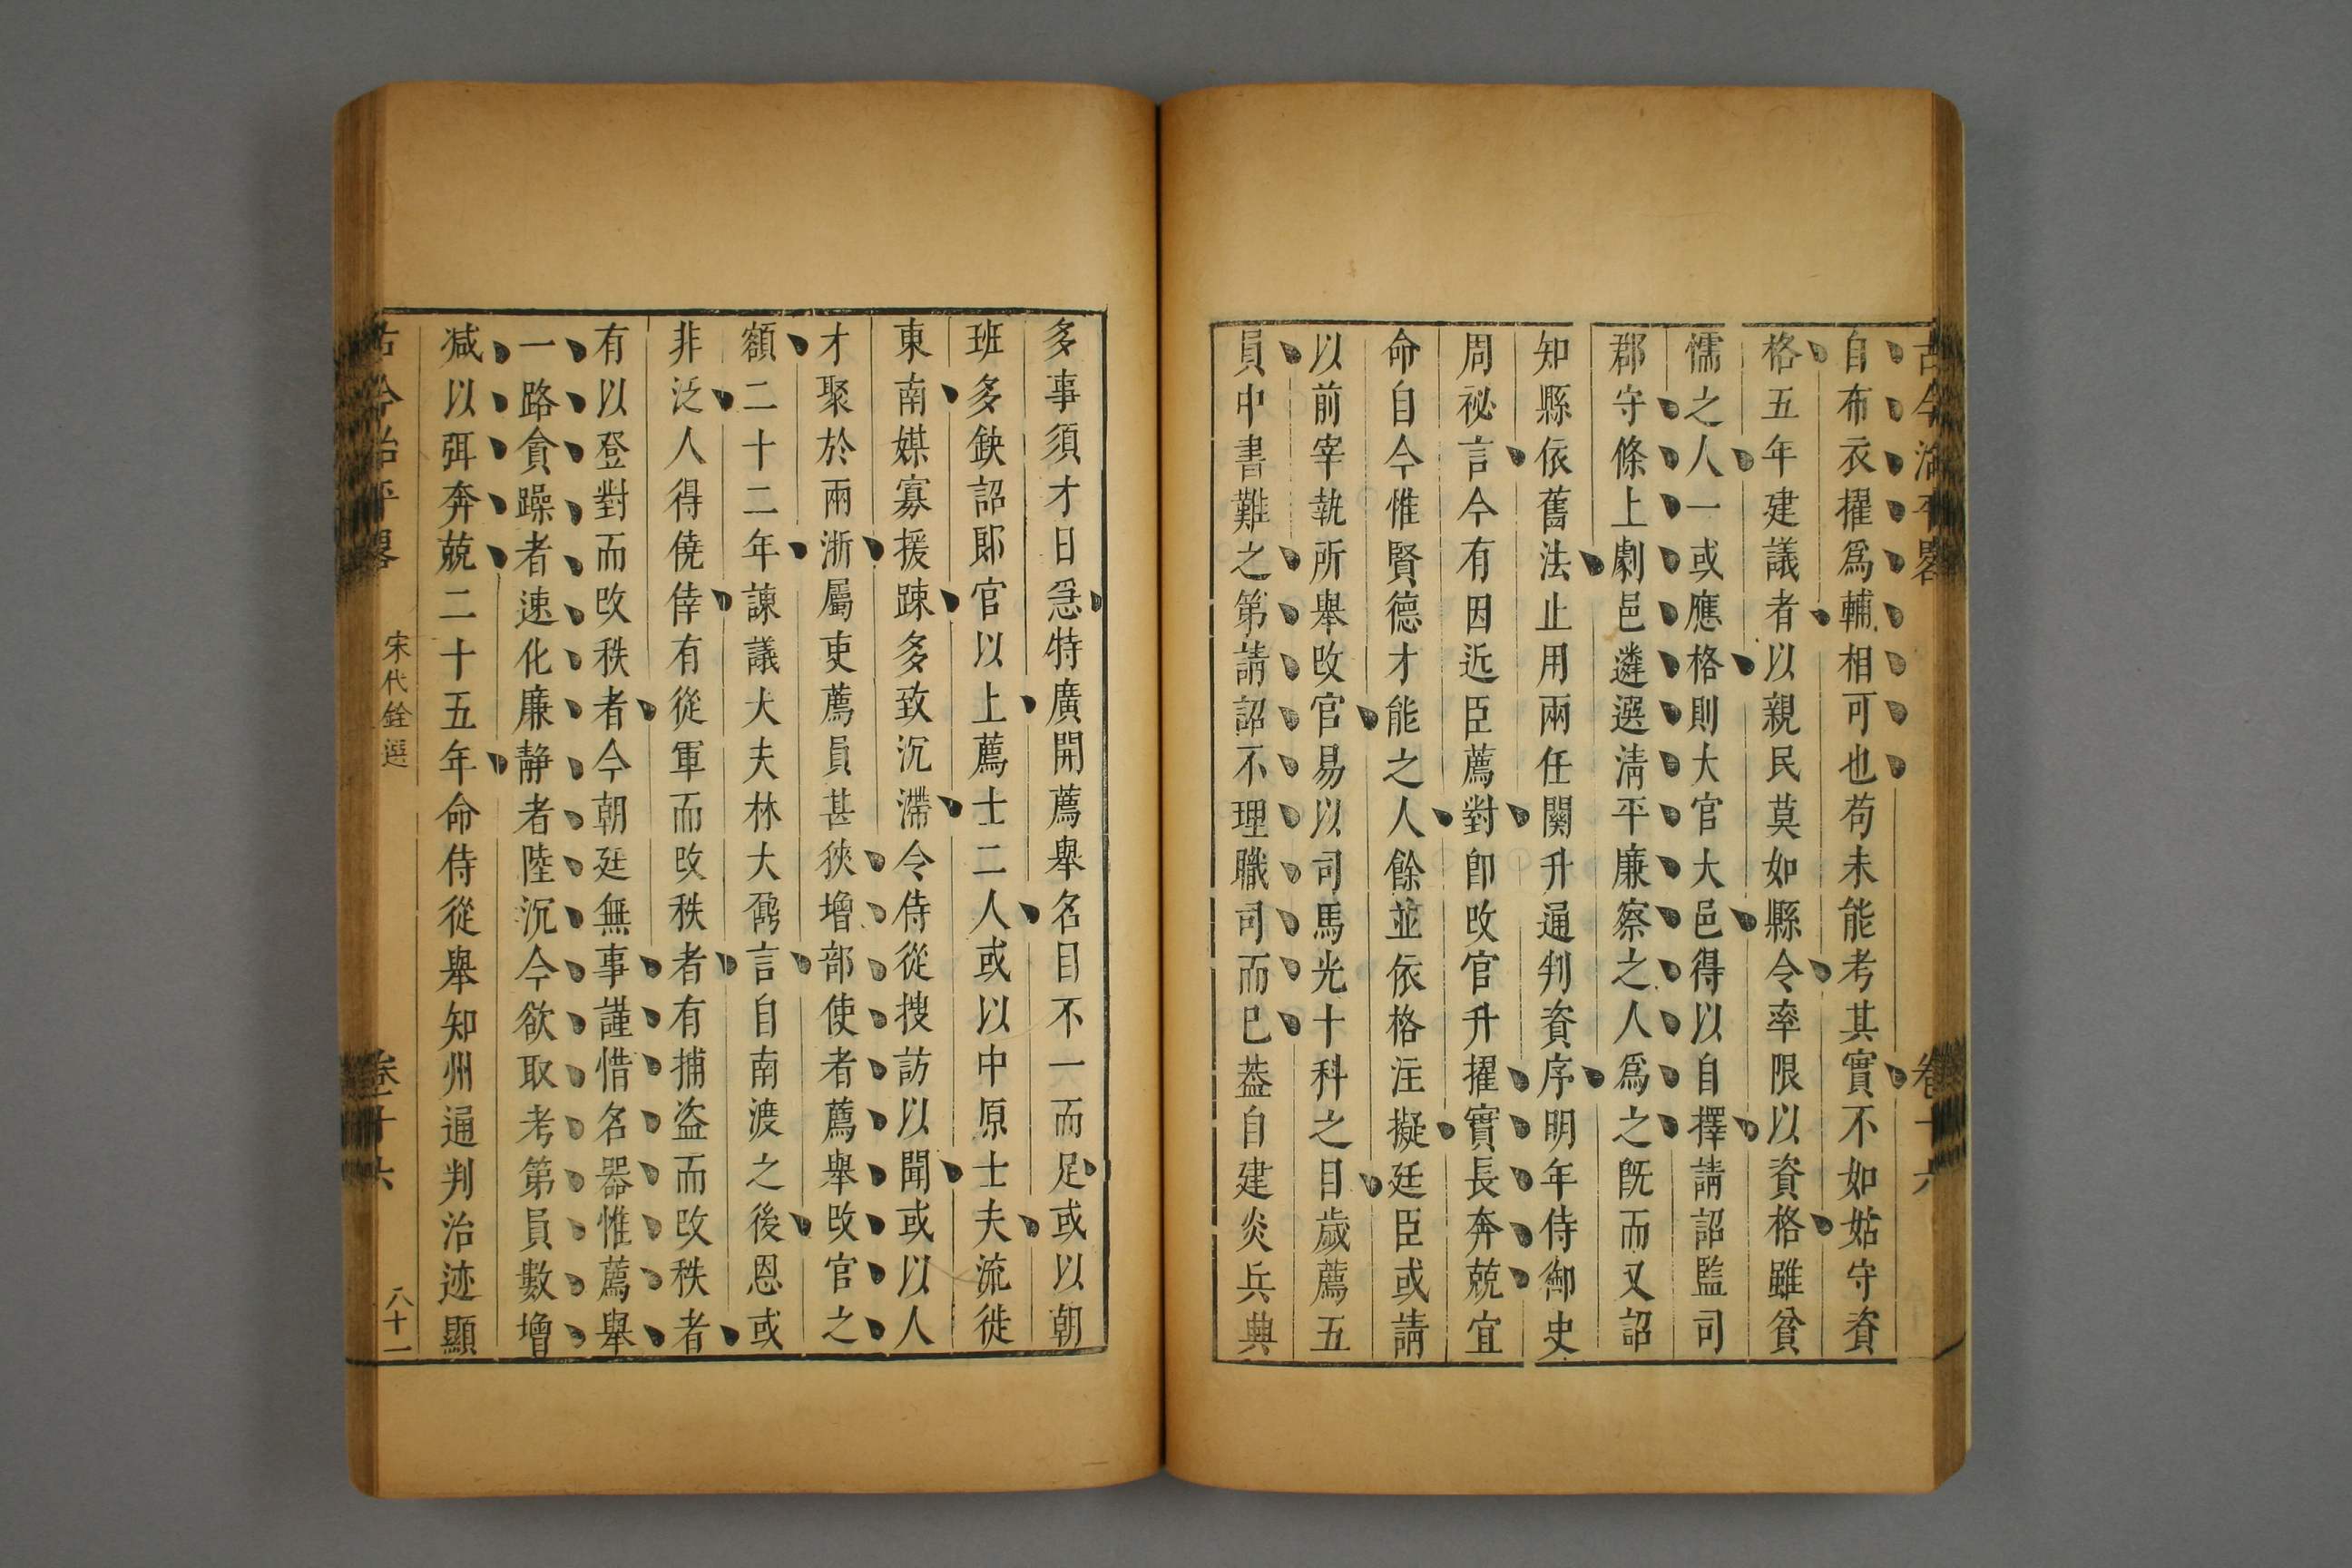 古今治平畧 卷十六
自布衣擢爲輔相可也苟未能考其實不如姑守資
格五年建議者以親民莫如縣令率限以資格雖貧
懦之人一或應格則大官大邑得以自擇請詔監司
郡守條上劇邑遴選淸平廉察之人爲之旣而又詔
知縣依舊法止用兩任關升通判資序明年侍御史
周祕言今有因近臣薦對卽改官升擢實長奔兢宜
命自今惟賢德才能之人餘並依格注擬廷臣或請
以前宰執所舉改官易以司馬光十科之目歲薦五
員中書難之第請詔不理職司而巳葢自建炎兵典
多事須才日急特廣開薦舉名目不一而足或以朝
班多缺詔郎官以上薦士二人或以中原士夫流徙
東南媒寡援踈多致沉滯令侍從搜訪以聞或以人
才聚於兩浙屬吏薦員甚狹增部使者薦舉改官之
額二十二年諫議大夫林大鼐言自南渡之後恩或
非泛人得僥倖有從軍而改秩者有捕盗而改秩者
有以登對而改秩者今朝廷無事謹惜名器惟薦舉
一路貪躁者速化廉靜者陸沉今欲取考第員數增
减以弭奔兢二十五年命侍從舉知州通判治迹顯
古今治平畧 宋代銓選 卷十六 八十一